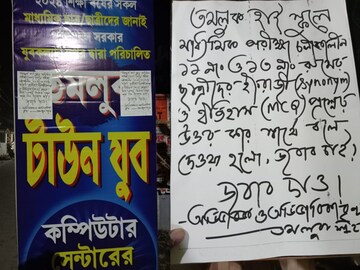 ২০২৪ শিক্ষা বর্ষের সকল
মাধ্যমিক ছাত্র ছাত্রীদের জানাই
সরকার
যুবকল্যাণ দ্বারা পরিচালিত
তমলুক
টাউন যুব
কম্পিউটার
সেন্টারের
তমলুক হাই স্কুলে
মাধ্যমিক পরীক্ষা চলাকালীন
১১ নং ও ১৩ নং রুমের
ছাত্রীদের ইংরাজী (Synonym)
ও ইতিহাস (MCQ) প্রশ্নের
উত্তর কার স্বার্থে বলে
দেওয়া হলো, জবাব চাই।
জবাব দাও।
-অভিভাবক ও অভিভাবিকাবৃন্দ
তমলুক